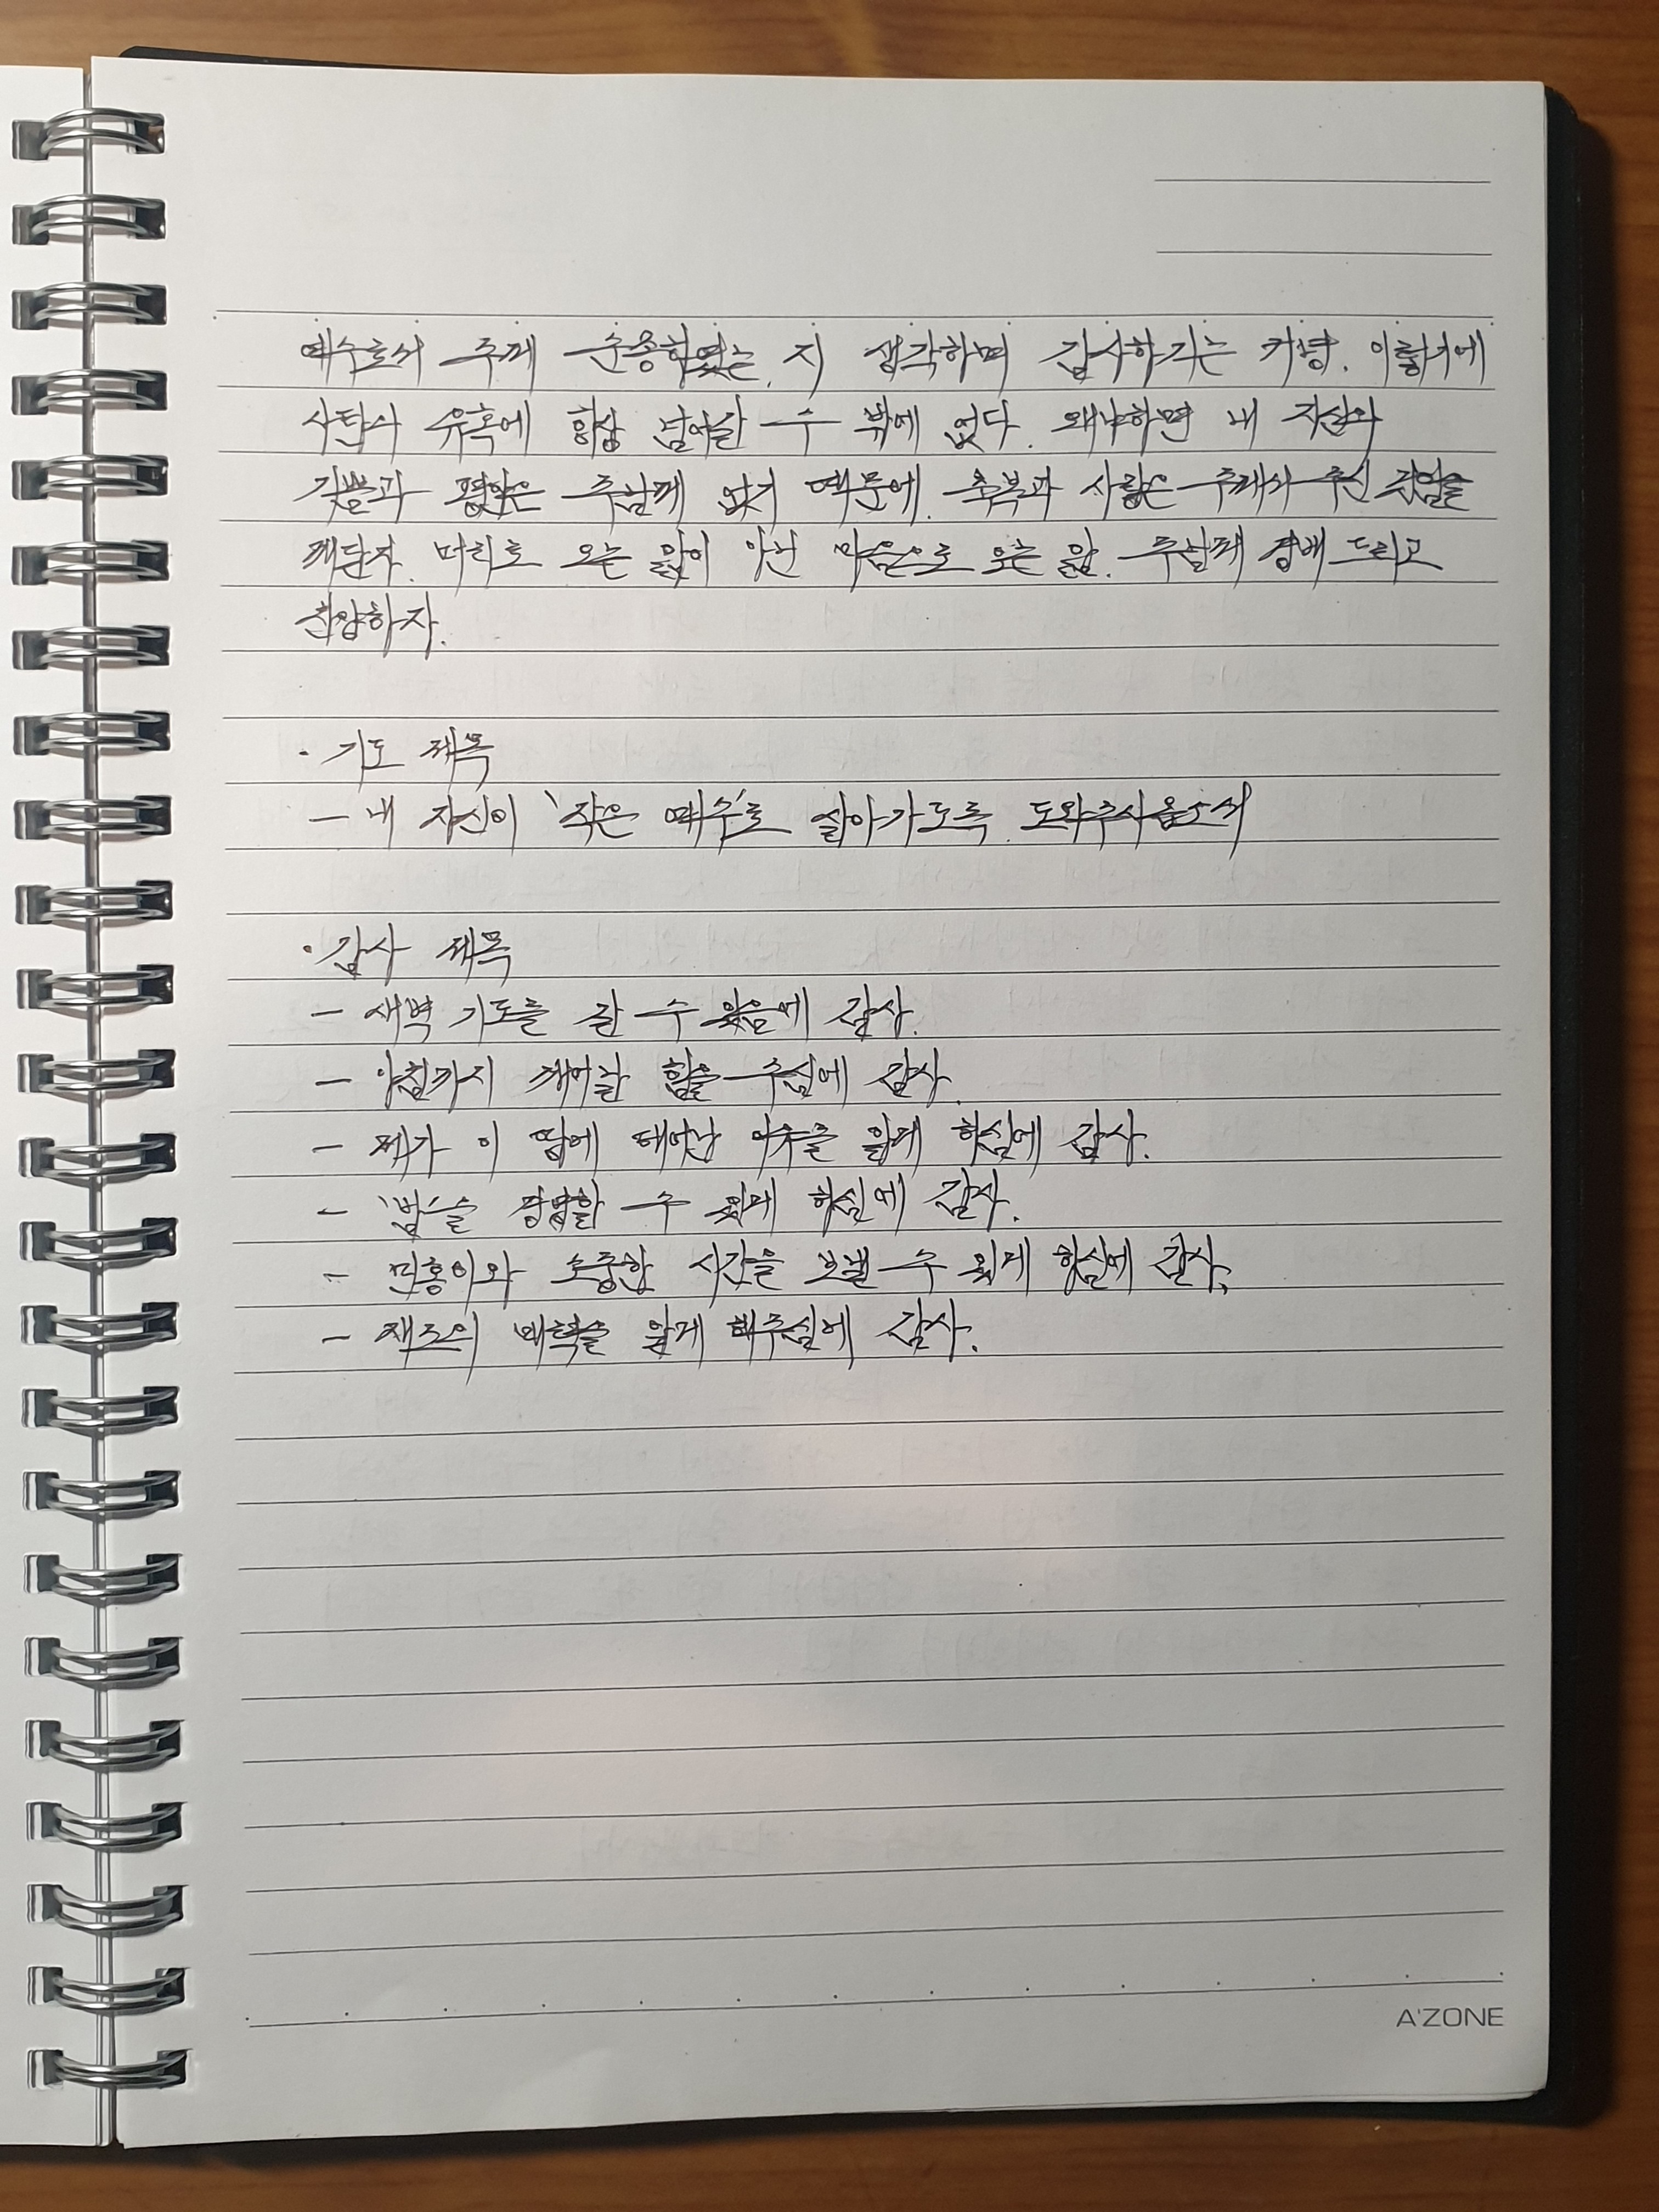 예수로서 주께 순종하였는 지 생각하며 감사하기는 커녕. 이렇기에
사탄의 유혹에 항상 넘어갈 수 밖에 없다. 왜냐하면 내 자신의
기쁨과 평안은 주님께 있기 때문에. 축복과 사랑은 주께서 주신
깨닫자. 머리로 오는 앎이 아닌 마음으로 오는 앎. 주님께 경배 드리고
찬양하자.
· 기도 제목
- 내 자신이 '작은 예수'로 살아가도록 도와주시옵소서
· 감사 제목
- 새벽 기도를 갈 수 있음에 감사.
- 아침까지 깨어날 힘을 주심에 감사.
- 제가 이 땅에 태어난 이유를 알게 하심에 감사.
- '밤'을 경험할 수 있게 하심에 감사.
- 민홍이와 소중한 시간을 보낼 수 있게 하심에 감사.
- 재즈의 매력을 알게 해주심에 감사.
A'ZONE